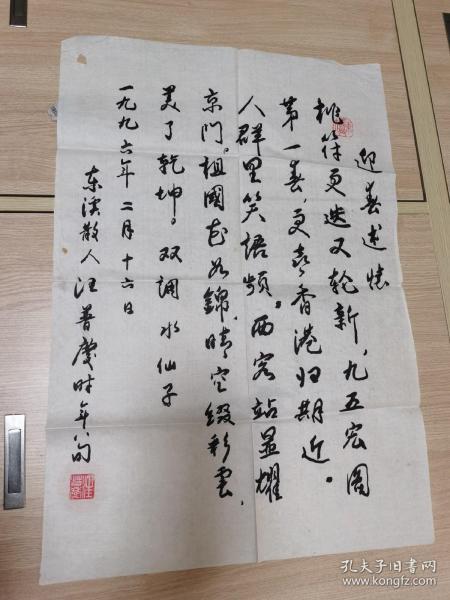 迎春述怀
桃符更迭又轮新，九五宏图
第一春，更喜香港归期近。
人群里笑语频。西客站显耀
京门。祖國花如錦，晴空缀彩雲，
美了乾坤。双调水仙子
一九九六年二月十六日
东溪散人汪普庆时年八旬
孔夫子旧书网
www.kongfz.com